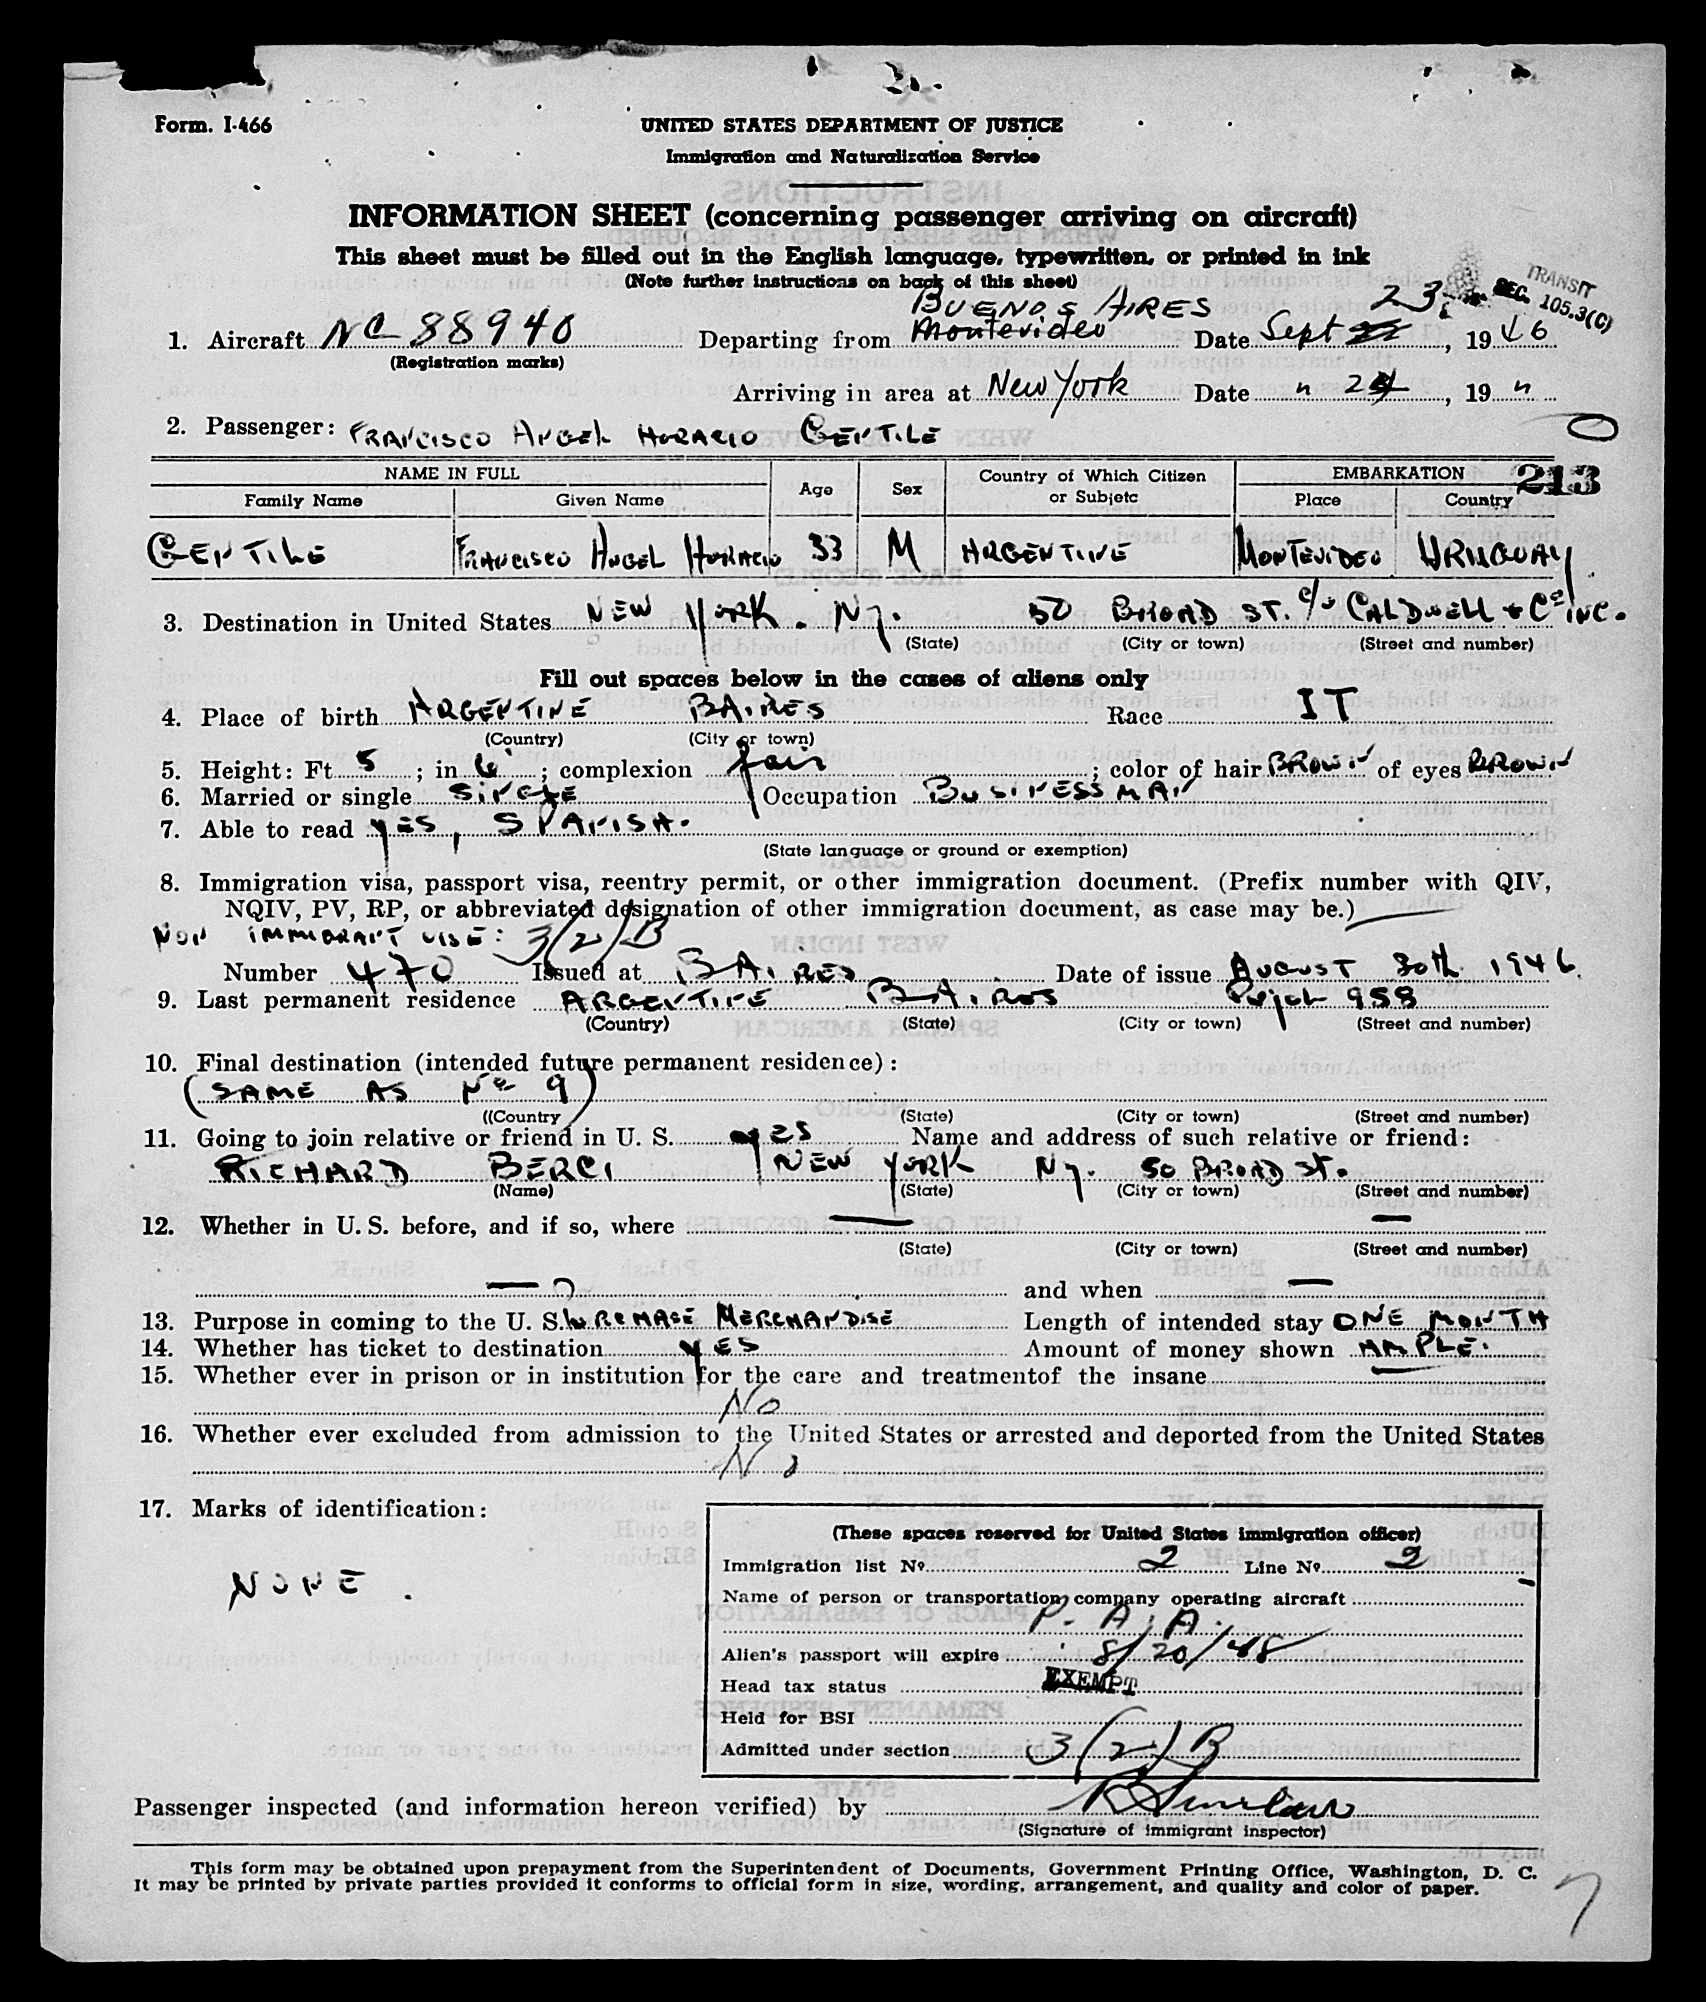 Form. I-466
UNITED STATES DEPARTMENT OF JUSTICE
Immigration and Naturalization Service
INFORMATION SHEET (concerning passenger arriving on aircraft)
This sheet must be filled out in the English language, typewritten, or printed in ink
(Note further instructions on back of this sheet)
TRANSIT
SEC. 105.3(C)
BUENOS AIRES 23
1. Aircraft NC 88940 Departing from Montevideo Date Sept 22, 1946
(Registration marks)
Arriving in area at New York Date " 24, 19 "
2. Passenger: FRANCISCO ANGEL HORACIO GENTILE
213
NAME IN FULL Age Sex Country of Which Citizen or Subjetc EMBARKATION
Family Name Given Name Place Country
GENTILE FRANCISCO ANGEL HORACIO 33 M ARGENTINE MONTEVIDEO URUGUAY
3. Destination in United States NEW YORK. Ny. 50 BROAD ST. c/o CALDWELL & Co INC.
(State) (City or town) (Street and number)
Fill out spaces below in the cases of aliens only
4. Place of birth ARGENTINE BAIRES Race IT
(Country) (City or town)
5. Height: Ft 5; in 6; complexion fair; color of hair BROWN of eyes BROWN
6. Married or single SINGLE Occupation BUSINESSMAN
7. Able to read YES, SPANISH.
(State language or ground or exemption)
8. Immigration visa, passport visa, reentry permit, or other immigration document. (Prefix number with QIV,
NQIV, PV, RP, or abbreviated designation of other immigration document, as case may be.)
NON IMMIGRANT VISE: 3(2)B
Number 470 Issued at BAIRES Date of issue AUGUST 30th 1946.
9. Last permanent residence ARGENTINE BAIRES Pujol 958
(Country) (State) (City or town) (Street and number)
10. Final destination (intended future permanent residence):
(SAME AS No 9)
((Country (State) (City or town) (Street and number)
11. Going to join relative or friend in U. S. yes Name and address of such relative or friend:
RICHARD BERCI NEW YORK Ny. 50 BROAD St.
(Name) (State) (City or town) (Street and number)
12. Whether in U. S. before, and if so, where — —
(State) (City or town) (Street and number)
— and when —
13. Purpose in coming to the U. S. PURCHASE MERCHANDISE Length of intended stay ONE MONTH
14. Whether has ticket to destination YES Amount of money shown AMPLE.
15. Whether ever in prison or in institution for the care and treatmentof the insane
No
16. Whether ever excluded from admission to the United States or arrested and deported from the United States
No
17. Marks of identification:
NONE.
(These spaces reserved for United States immigration officer)
Immigration list No 2 Line No 2
Name of person or transportation company operating aircraft
P. A. A.
Alien's passport will expire 8/20/48
Head tax status EXEMPT
Held for BSI
Admitted under section 3(2)B
Passenger inspected (and information hereon verified) by
(Signature of immigrant inspector)
This form may be obtained upon prepayment from the Superintendent of Documents, Government Printing Office, Washington, D. C.
It may be printed by private parties provided it conforms to official form in size, wording, arrangement, and quality and color of paper.
7